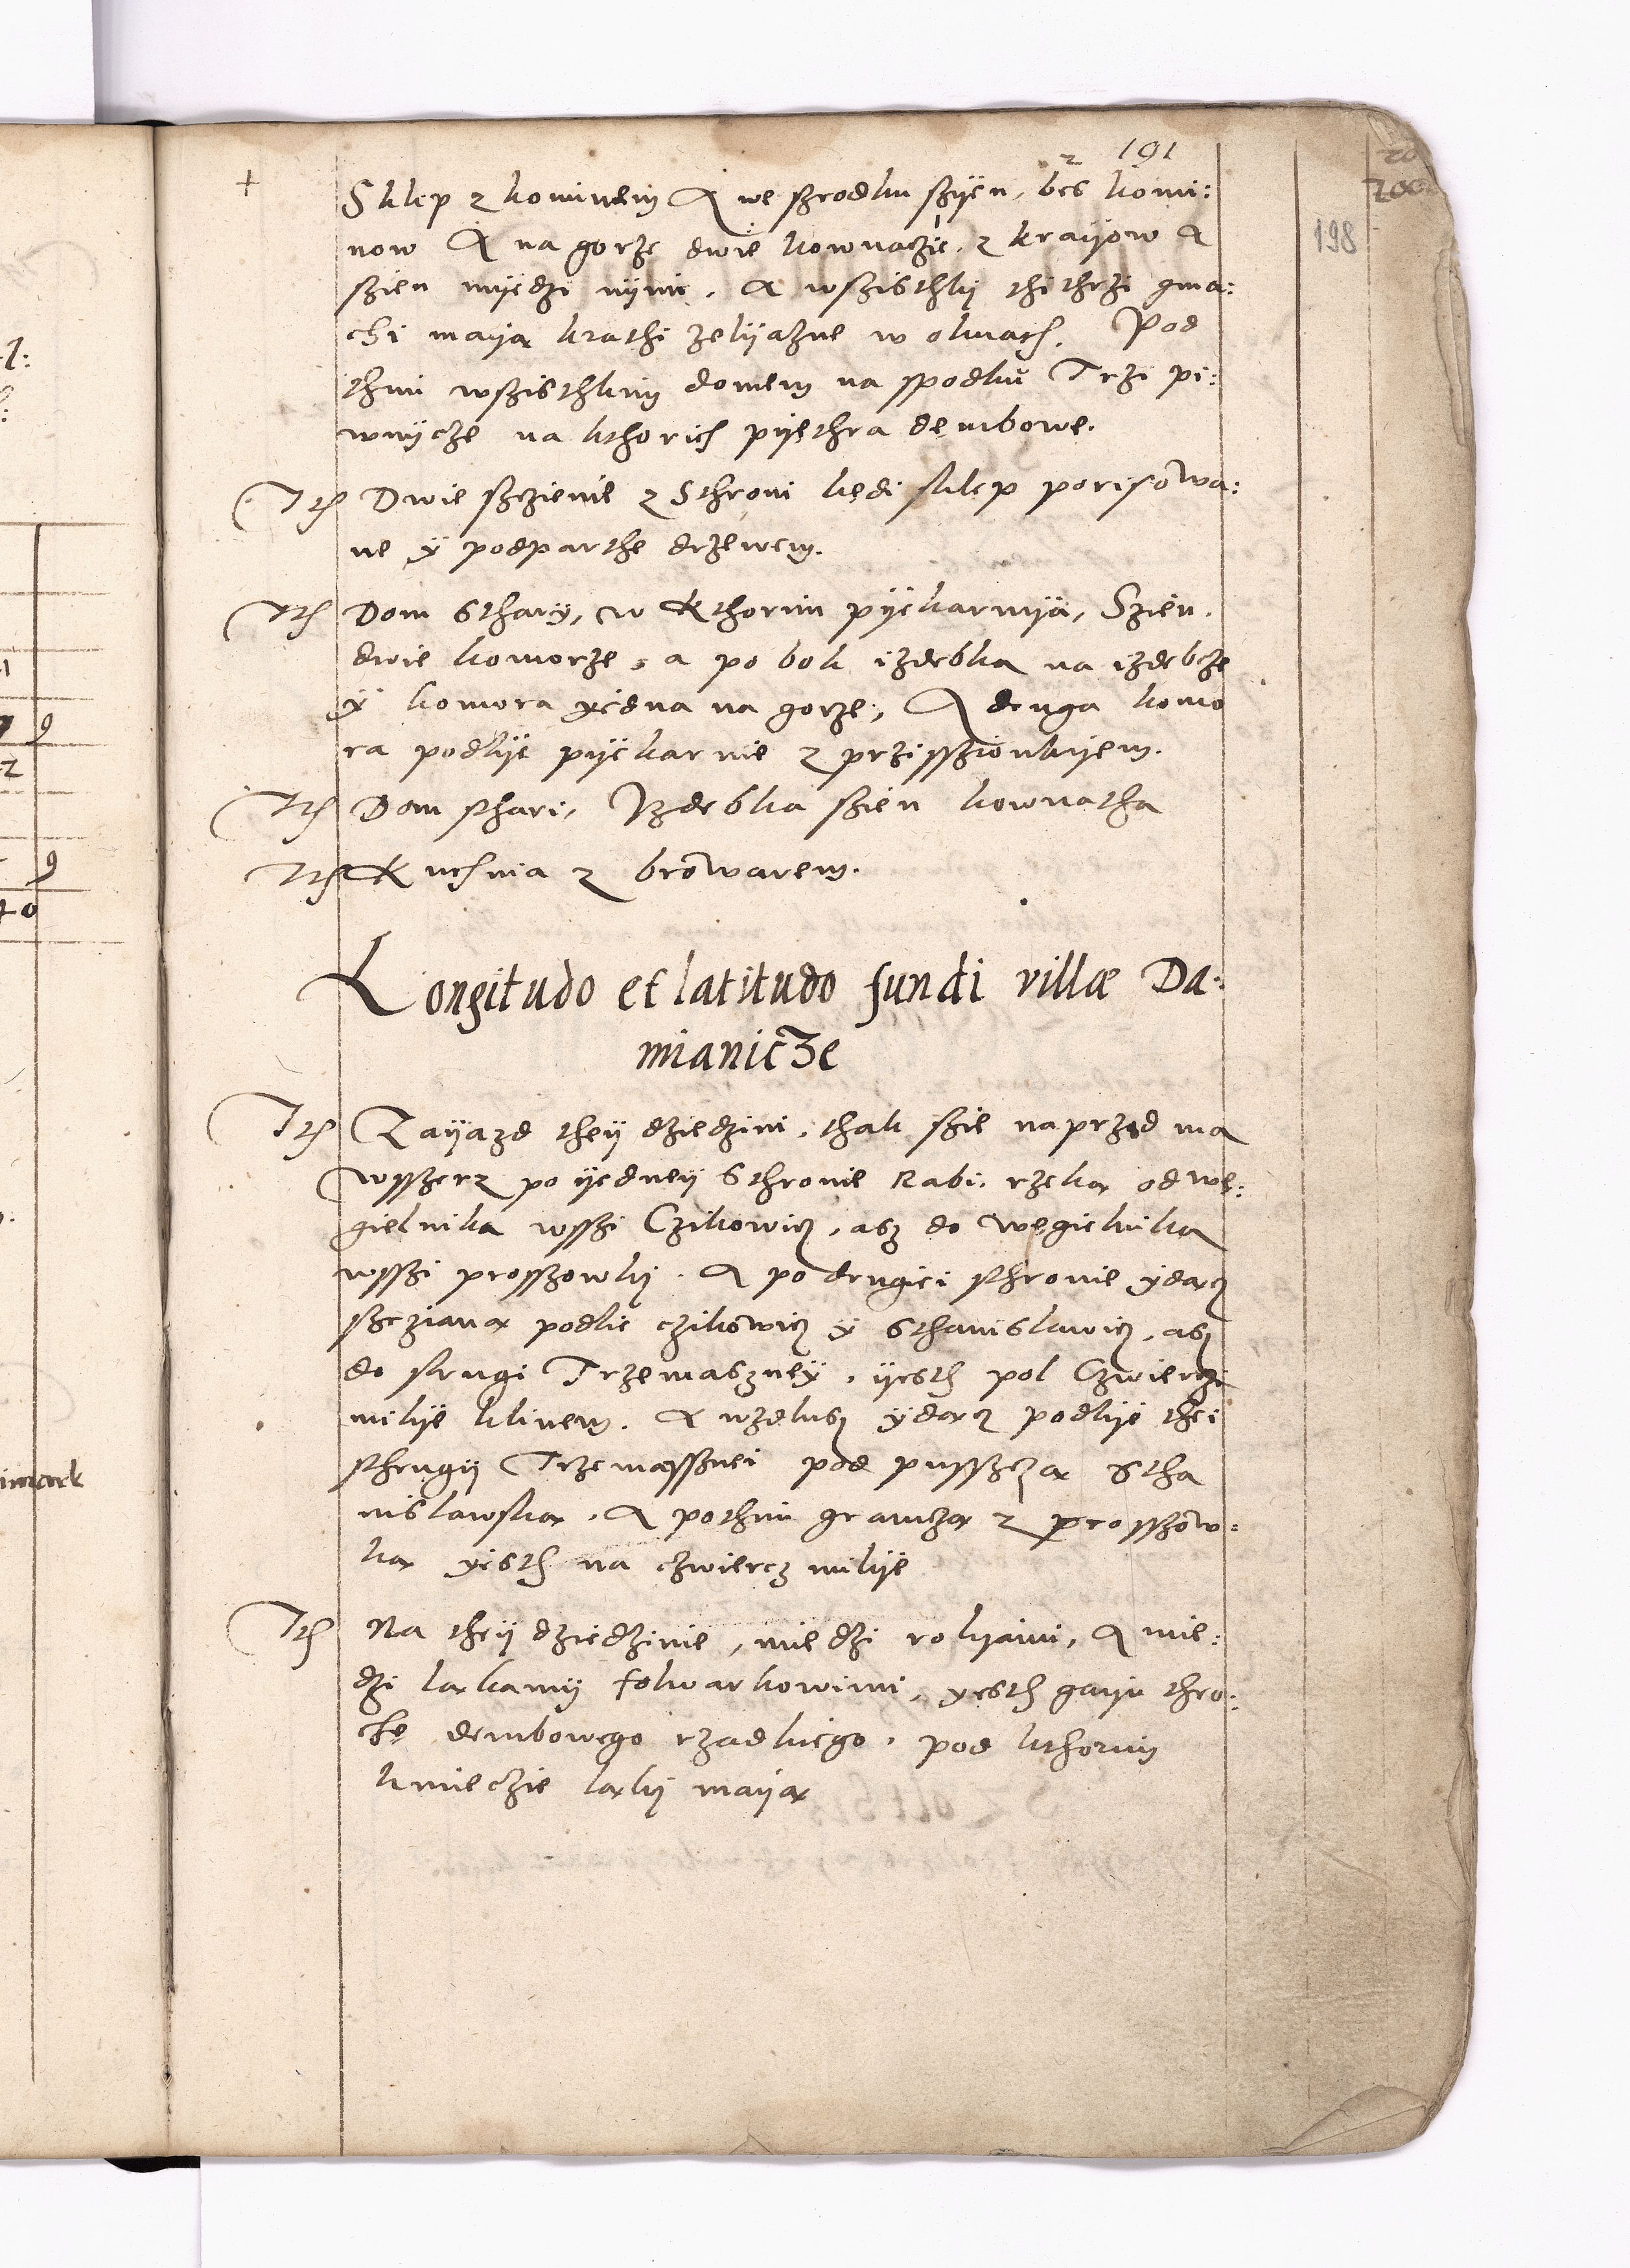 191
198
200
Sklep z kominem A we szrodku szyen, bes komi:
now A na gorze dwie kownaczie, z kraiyow A
szien myedzi nymi, A wszisthky thi thrzi gma:
chi maya krathi zeliyazne w oknach. Pod
thim wszisthkim domem na spodku Trzi pi:
wnycze na kthorich pyethra dembowe.
Ith Dwie szczienie z Sthroni kędi sklep porisowa:
ne ÿ podparthe drzewem.
Ith Dom Stharÿ, w Kthorim pyekarnya, Szien,
dwie komorze, a po bok izdebka na izdebcze
ÿ komora yedna na gorze, A druga komo
ra podlye pyekarnie z przisszionkyem.
Ith Dom sthari, Izdebka szien kownatha
Ith Kuchnia z browarem.
Longitudo et latitudo fundi villæ Da:
mianicze
Ith Zayazd they dziedzini, thak szie naprzod ma
wsszerz po yedney Sthronie Rabi, rzeka od we:
gielnika wsszi Czikowicz, asz do wegielnika
wsszi prosszowky. A po drugiei sthronie ydacz
szcziana podlie czikowicz ÿ Sthanislawicz, asz
do strugi Trzemaszneÿ, yesth pol Czwierczi
milye klinem. A wzdlusz ydacz podlye thei
sthrugy Trzemesssznei pod pusszcza Stha
nislawska, A pothim granicza z prosszow:
ka yesth na czwiercz milye
Ith Na they dziedzinie, miedzi rolyami, A mie:
dzi lakamy folwarkowimi, yesth gayu thro:
chę dembowego rzadkiego, pod kthorim
kmieczie laky maya